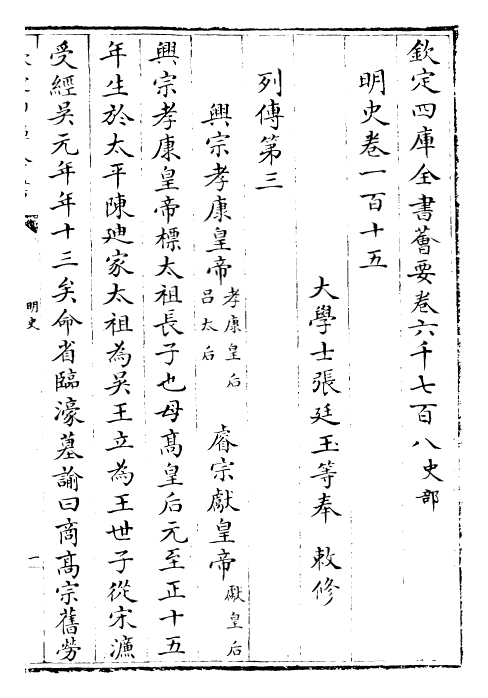 欽定四庫全書薈要卷六千七百八史部
明史卷一百十五
大學士張廷玉等奉 敕修
列傳第三
興宗孝康皇帝 孝康皇后 呂太后 睿宗獻皇帝 獻皇后
興宗孝康皇帝標太祖長子也母髙皇后元至正十五
年生於太平陳廸家太祖為吳王立為王世子從宋濂
受經吳元年年十三矣命省臨濠墓諭曰商髙宗舊勞
明史
一